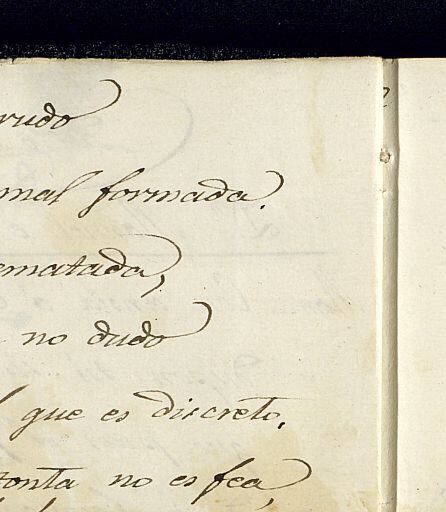 rudo
mal formada.
ematada,
no dudo
que es discreto,
tonta no es fea,